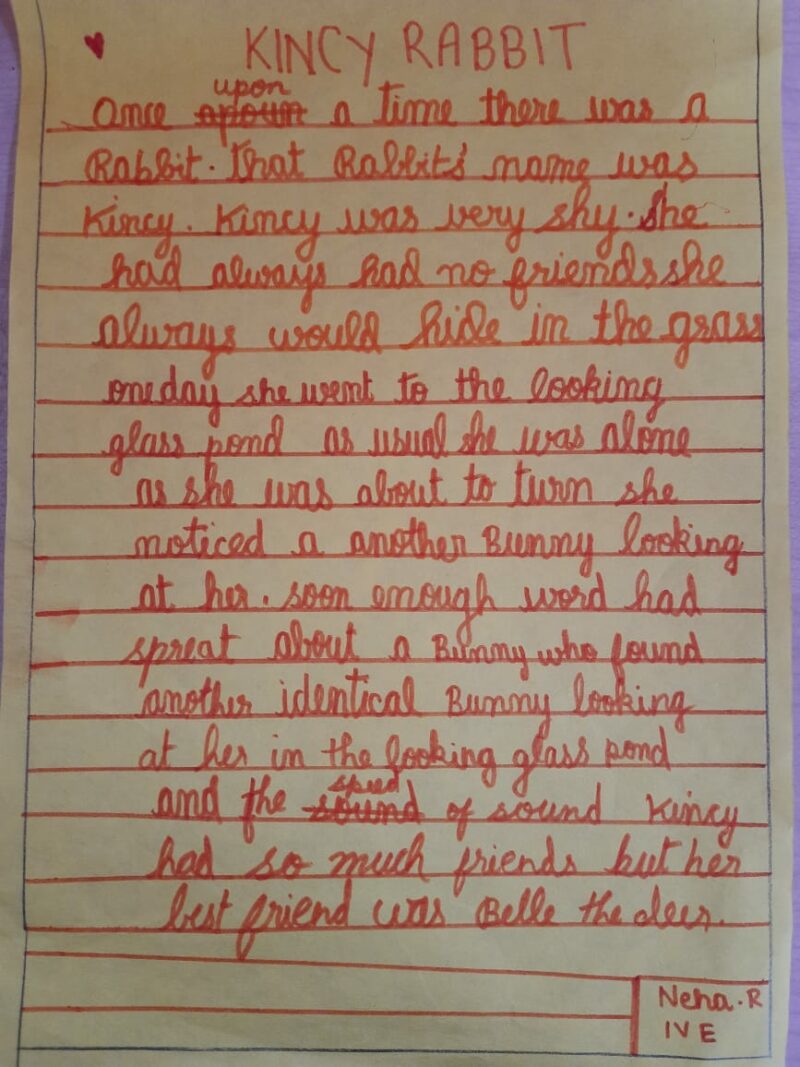 KINCY RABBIT
Once upon a time there was a
Rabbit. That Rabbit's name was
Kincy. Kincy was very shy. She
had always had no friends she
always would hide in the grass
one day she went to the looking
glass pond as usual she was alone
as she was about to turn she
noticed a another Bunny looking
at her. soon enough word had
spreat about a Bunny who found
another identical Bunny looking
at her in the looking glass pond
and the speed of sound Kincy
had so much friends but her
best friend was Belle the deer.
Neha.R
IV E